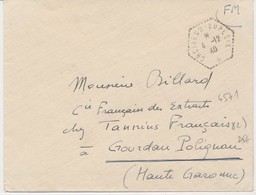 (FM)
4 -12
40
Monsieur Billard
Cie Français des Extraits
chez Tannins Français
à Gourdan Polignan
(Haute Garonne)